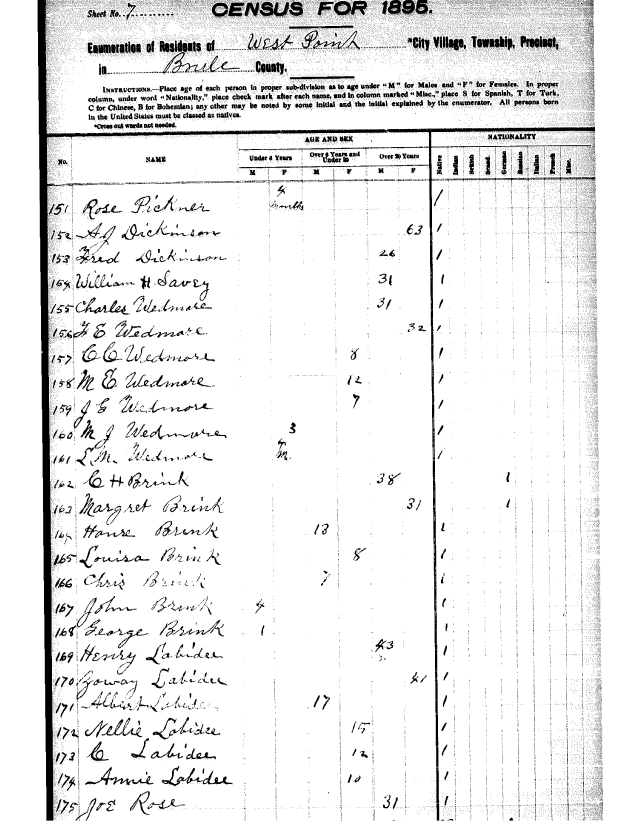 Sheet No. 7
CENSUS FOR 1895.
Enumeration of Residents of West Point *City Village, Township, Precinct,
in Brule County.
INSTRUCTIONS.—Place age of each person in proper sub-division as to age under "M" for Males and "F" for Females. In proper
column, under word "Nationality," place check mark after each name, and in column marked "Misc.," place S for Spanish, T for Turk,
C for Chinese, B for Bohemian; any other may be noted by some initial and the initial explained by the enumerator. All persons born
in the United States must be classed as natives.
*Cross out words not needed.
AGE AND SEX NATIONALITY
No. NAME Under 6 Years Over 6 Years and Under 20 Over 20 Years Native Indian British Scand. German Russian Italian French Misc.
M F M F M F
151 Rose Pickner 4 months /
152 A J Dickinson 63 /
153 Fred Dickinson 26 /
154 William H Savey 31 /
155 Charles Wedmore 31 /
156 F E Wedmore 32 /
157 C C Wedmore 8 /
158 M E Wedmore 12 /
159 J E Wedmore 7 /
160 M J Wedmore 3 /
161 L M. Wedmore 4 m /
162 C H Brink 38 /
163 Margret Brink 31 /
164 Hanse Brink 13 /
165 Louisa Brink 8 /
166 Chris Brink 7 /
167 John Brink 4 /
168 George Brink 1 /
169 Henry Labidee 43 /
170 Zoway Labidee 41 /
171 Albert Labidee 17 /
172 Nellie Labidee 15 /
173 C Labidee 12 /
174 Annie Labidee 10 /
175 Joe Rose 31 /